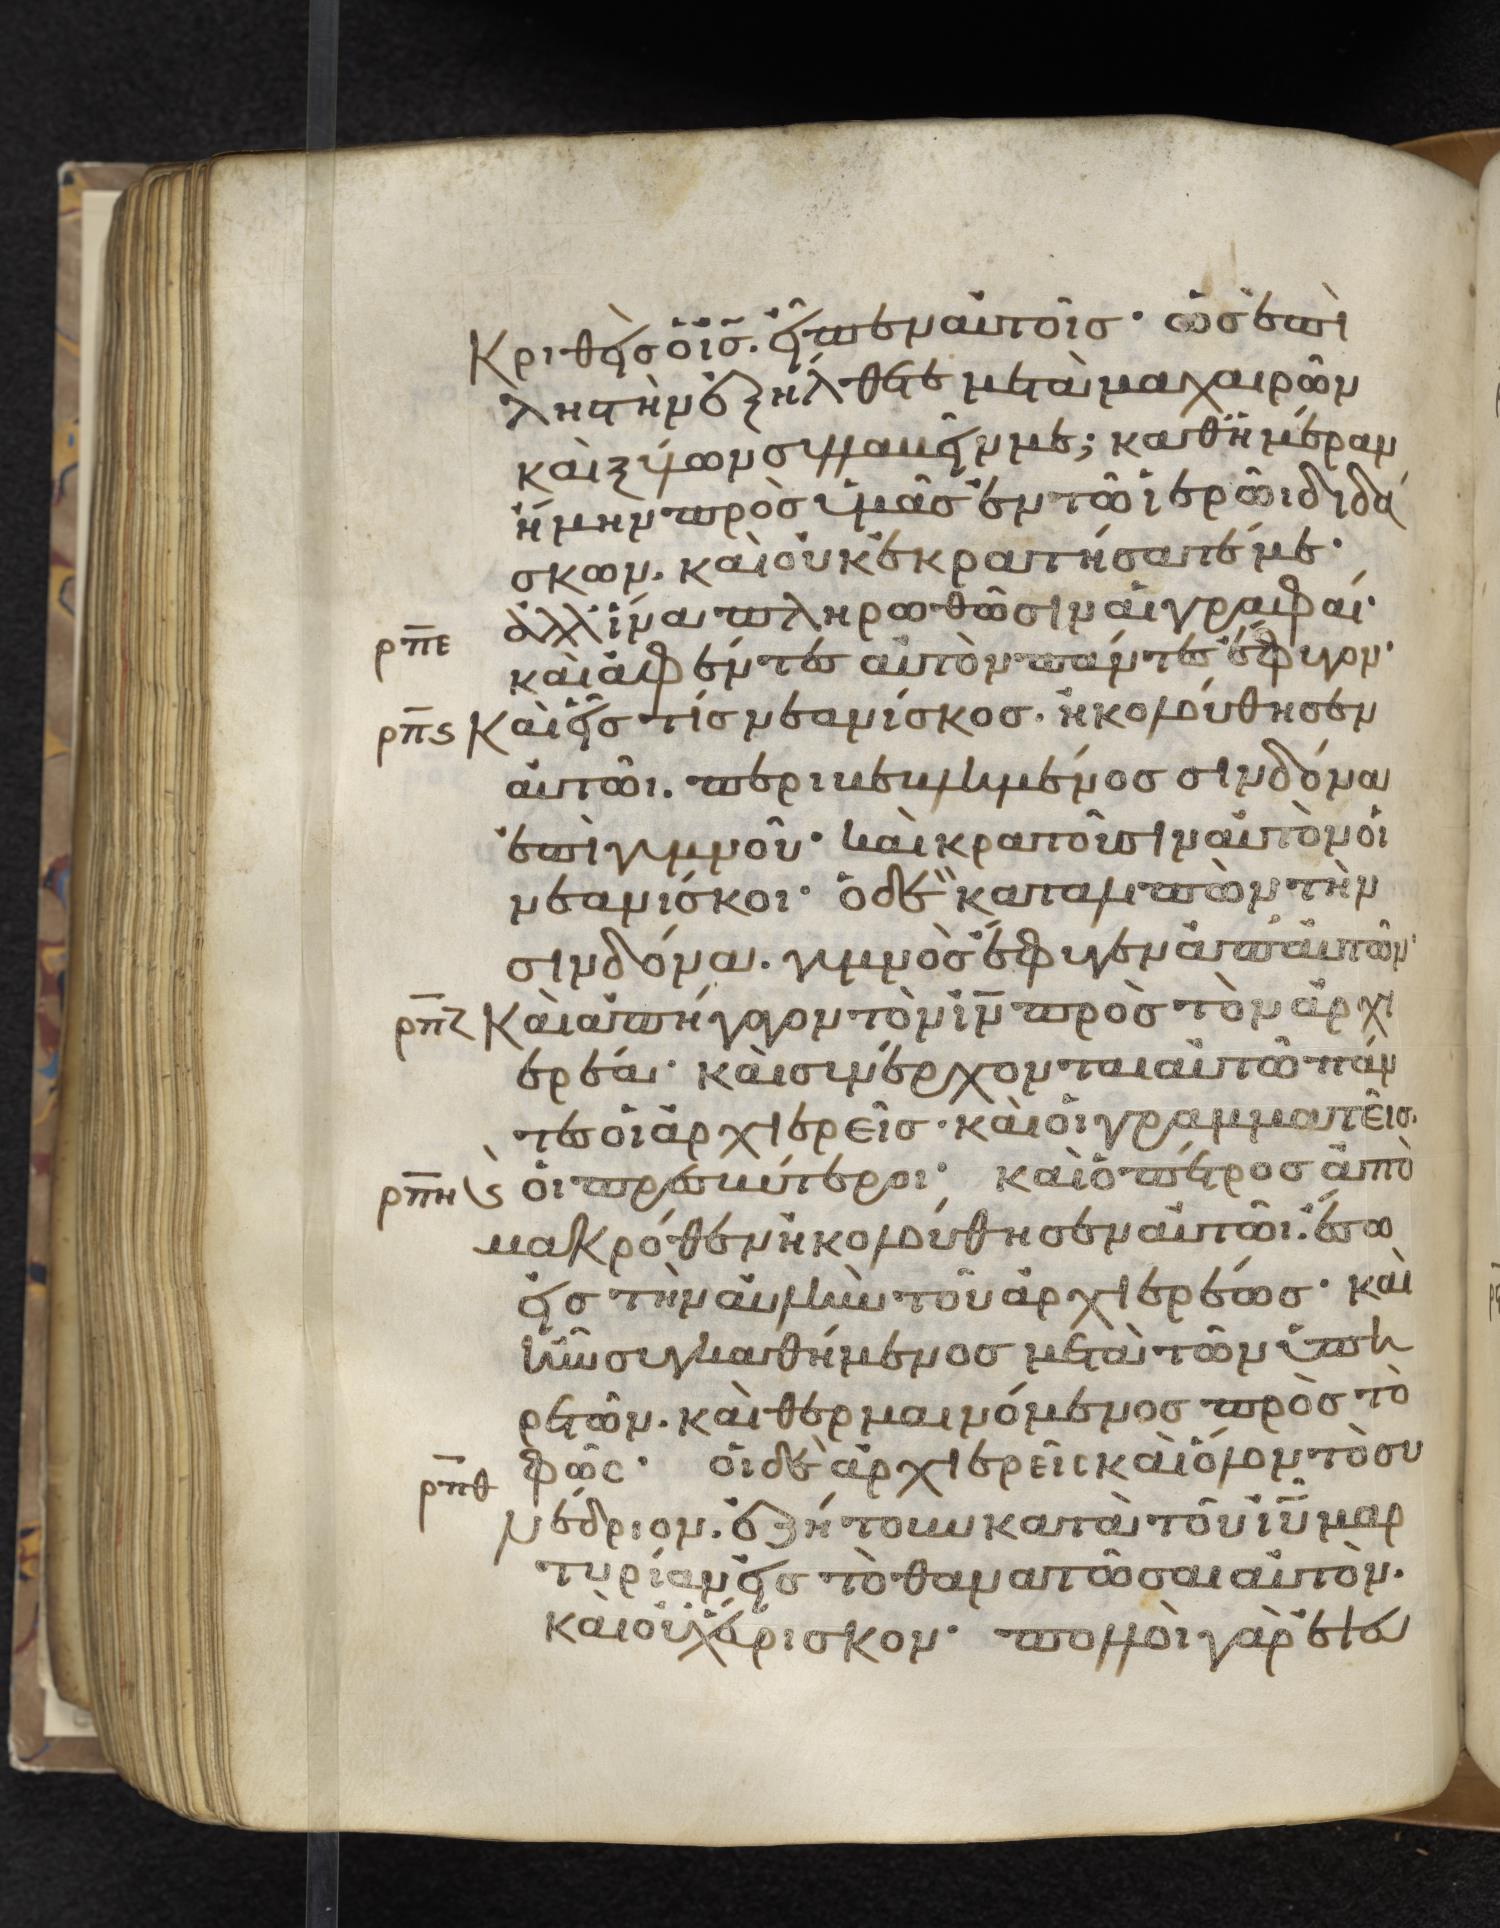 Κριθεὶς ὁ ἰ̅ς̅. εἶπεν αὐτοῖσ· ὡσ ἐπὶ
ληστὴν ἐξήλθετε μετὰ μαχαιρῶν
καὶ ξύλων συλλαβεῖν με; καθ ἡμέραν
ἤμην πρὸσ ὑμᾶσ ἐν τῶ ἱερῶι διδά
σκων. καὶ οὐκ ἐκρατήσατέ με·
ἀλλ ἵνα πληρωθῶσιν αἱ γραφαί·
ρπε καὶ ἀφέντεσ αὐτὸν πάντεσ ἔφυγον·
ρπϛ Καὶ εἷσ τίσ νεανίσκοσ. ἠκολούθησεν
αὐτῶι. περιβεβλημένοσ σινδόνα
ἐπὶ γυμνοῦ· καὶ κρατοῦσιν αὐτὸν οἱ
νεανίσκοι· ὁ δὲ καταλιπὼν τὴν
σινδόνα. γυμνὸσ ἔφυγεν ἀπ αὐτῶν·
ρπζ Καὶ ἀπήγαγον τὸν ἰ̅ν̅ πρὸσ τὸν ἀρχι
ερέα· καὶ συνέρχονται αὐτῶ πάν
τεσ οἱ ἀρχιερεῖσ· καὶ οἱ γραμματεῖσ.
ρπη ϛ οἱ πρεσβύτεροι· καὶ ὁ πέτροσ ἀπὸ
μακρόθεν ἠκολούθησεν αὐτῶι. ἔσω
εἰσ τὴν αὐλὴν τοῦ ἀρχιερέωσ· καὶ
ἦν συγκαθήμενοσ μετὰ τῶν ὑπη
ρετῶν. καὶ θερμαινόμενοσ πρὸσ τὸ
ρπθ φῶς· οἱ δὲ ἀρχιερεῖς καὶ ὅλον τὸ συ
νέδριον. ἐζήτουν κατὰ τοῦ ἰ̅υ̅ μαρ
τυρίαν εἰσ τὸ θανατῶσαι αὐτὸν.
καὶ οὐχ εὕρισκον· πολλοὶ γὰρ ἐψευ